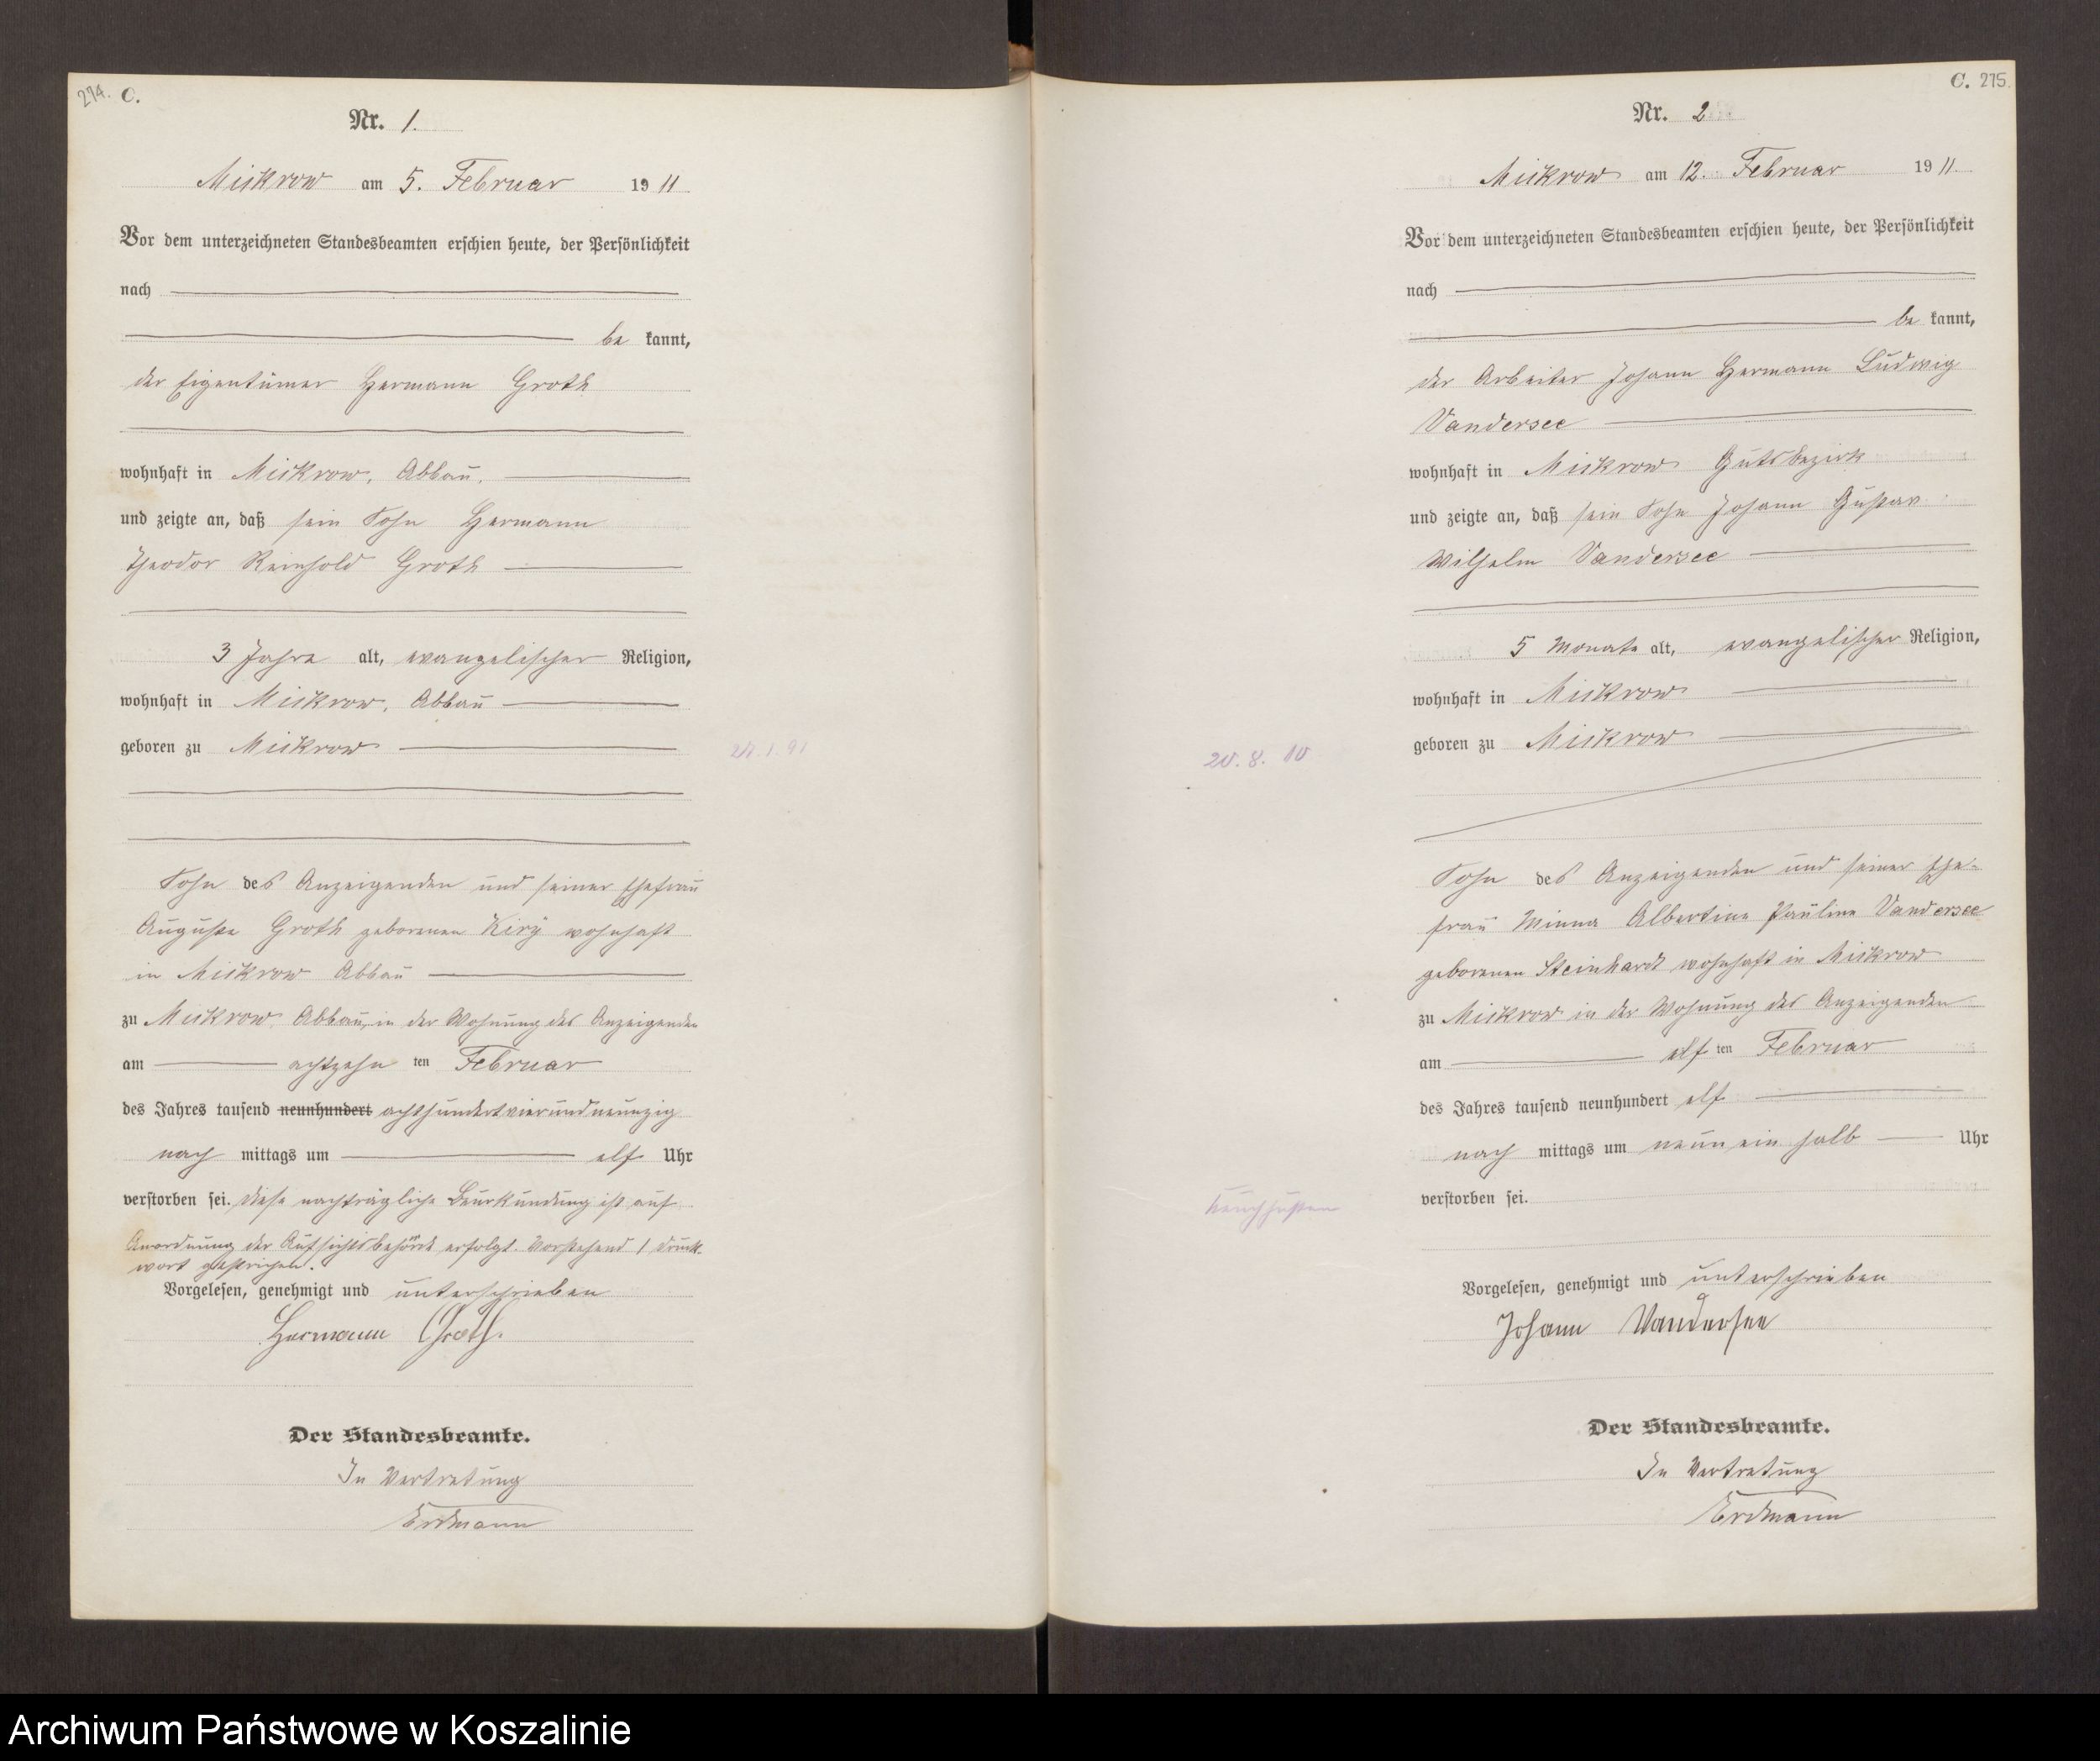 274. C.
Nr. 1.
Mickrow am 5. Februar 1911
Vor dem unterzeichneten Standesbeamten erschien heute, der Persönlichkeit
nach
be kannt,
der Eigentümer Hermann Groth
wohnhaft in Mickrow, Abbau,
und zeigte an, daß sein Sohn Hermann
Theodor Reinhold Groth
3 Jahre alt, evangelischer Religion,
wohnhaft in Mickrow, Abbau
geboren zu Mickrow
Sohn des Anzeigenden und seiner Ehefrau
Auguste Groth geborenen wohnhaft
in Mickrow Abbau
zu Mickrow Abbau, in der Wohnung des Anzeigenden
am achtzehn ten Februar
des Jahres tausend neunhundert achthundertvierundneunzig
nach mittags um elf Uhr
verstorben sei. Diese nachträgliche Beurkundung ist auf
Anordnung der Aufsichtsbehörde erfolgt. Vorstehend 1 Druck-
wort gestrichen.
Vorgelesen, genehmigt und unterschrieben
Hermann Groth.
Der Standesbeamte.
In Vertretung
Erdmann
C. 275.
Nr. 2
Mickrow am 12. Februar 1911
Vor dem unterzeichneten Standesbeamten erschien heute, der Persönlichkeit
nach
be kannt,
der Arbeiter Johann Hermann Ludwig
Vandersee
wohnhaft in Mickrow Gutsbezirk
und zeigte an, daß sein Sohn Johann Gustav
Wilhelm Vandersee
5 Monate alt, evangelischer Religion,
wohnhaft in Mickrow
geboren zu Mickrow
20. 8. 10
Sohn des Anzeigenden und seiner Ehe-
frau Minna Albertine Pauline Vandersee
geborenen Steinhardt wohnhaft in Mickrow
zu Mickrow in der Wohnung des Anzeigenden
am elf ten Februar
des Jahres tausend neunhundert elf
nach mittags um neun ein halb Uhr
verstorben sei.
Keuchhusten
Vorgelesen, genehmigt und unterschrieben
Johann Vandersee
Der Standesbeamte.
In Vertretung
Erdmann
Archiwum Państwowe w Koszalinie